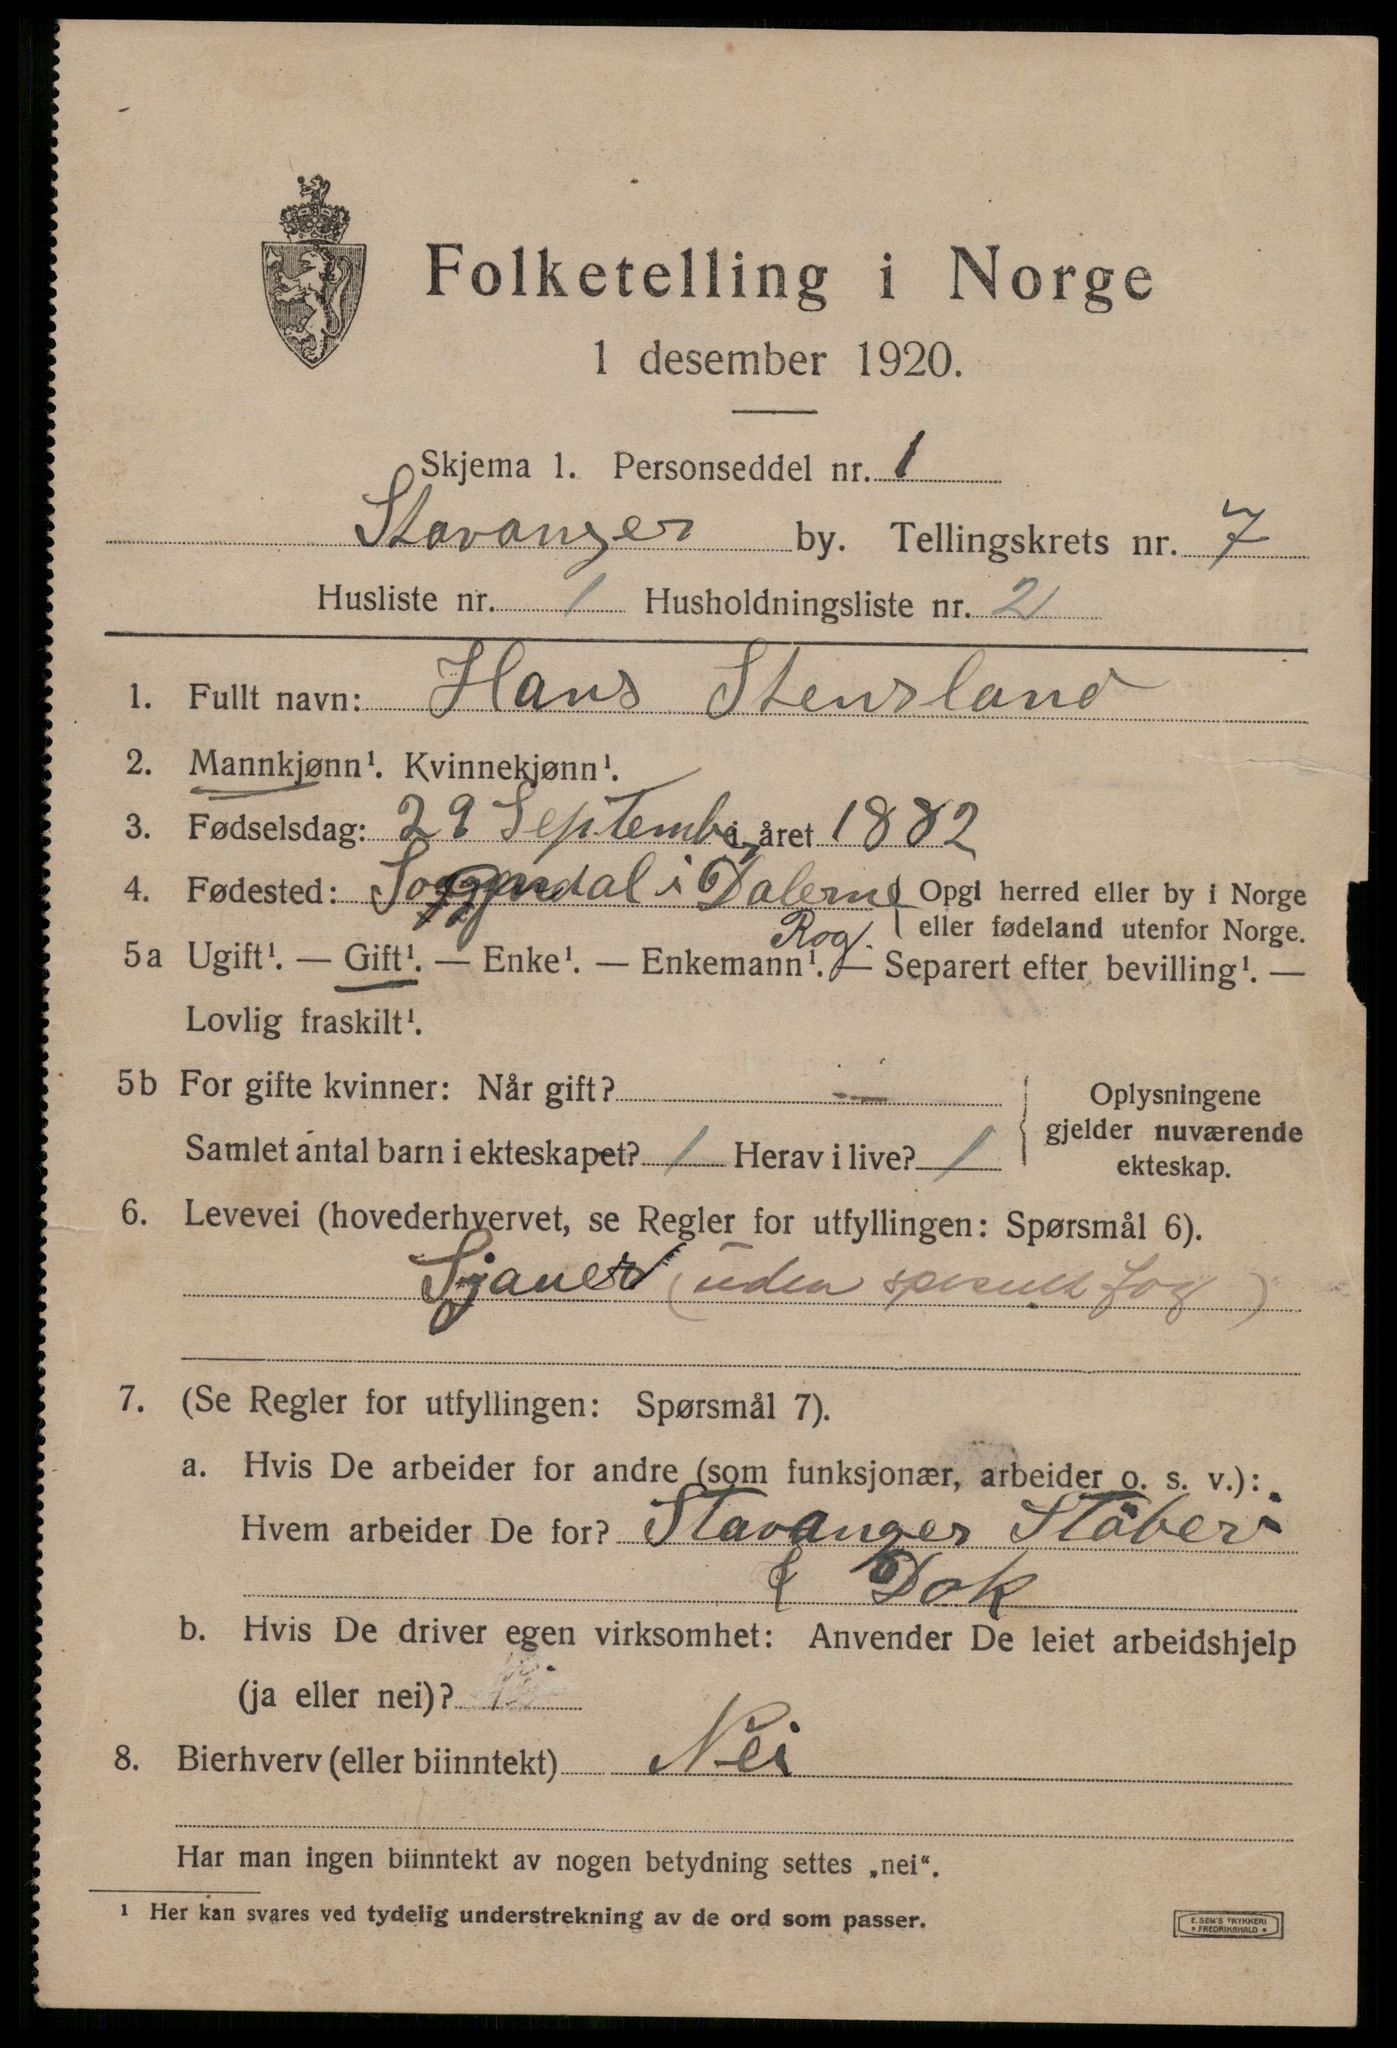 Folketelling i Norge
1 desember 1920.
Skjema 1. Personseddel nr. 1
Stavanger by. Tellingskrets nr. 7
Husliste nr. 1 Husholdningsliste nr. 2
1. Fullt navn: Hans Stensland
2. Mannkjønn¹. Kvinnekjønn¹.
3. Fødselsdag: 29 Septemb i året 1882
4. Fødested: Soggendal i Dalerne Opgi herred eller by i Norge
eller fødeland utenfor Norge.
Rog.
5a Ugift¹. — Gift¹. — Enke¹. — Enkemann¹. — Separert efter bevilling¹. —
Lovlig fraskilt¹.
5b For gifte kvinner: Når gift? —
Samlet antal barn i ekteskapet? 1 Herav i live? 1
Oplysningene
gjelder nuværende
ekteskap.
6. Levevei (hovederhvervet, se Regler for utfyllingen: Spørsmål 6).
Sjauer (uden specielt fag)
7. (Se Regler for utfyllingen: Spørsmål 7).
a. Hvis De arbeider for andre (som funksjonær, arbeider o. s. v.):
Hvem arbeider De for? Stavanger Støberi
& Dok
b. Hvis De driver egen virksomhet: Anvender De leiet arbeidshjelp
(ja eller nei)?
8. Bierhverv (eller biinntekt) Nei
Har man ingen biinntekt av nogen betydning settes „nei“.
¹ Her kan svares ved tydelig understrekning av de ord som passer.
E. SEM'S TRYKKERI
* FREDRIKSHALD *